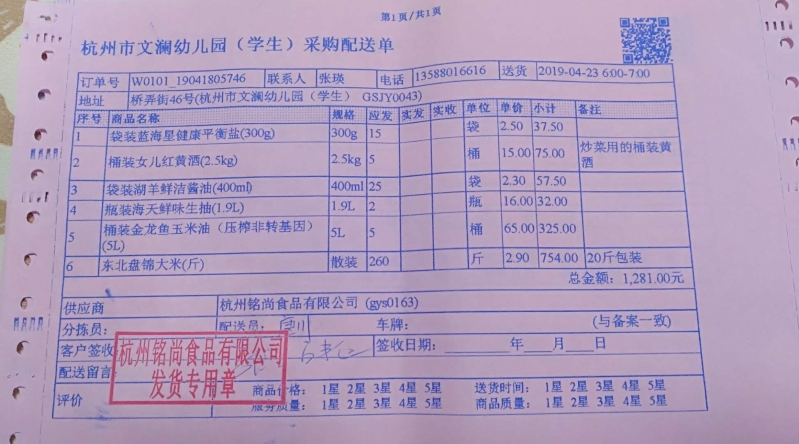 第1页/共1页
杭州市文澜幼儿园（学生）采购配送单
订单号 W0101_19041805746 联系人 张瑛 电话 13588016616 送货 2019-04-23 6:00-7:00
地址 桥弄街46号(杭州市文澜幼儿园（学生） GSJY0043)
序号 商品名称 规格 应发 实发 实收 单位 单价 小计 备注
1 袋装蓝海星健康平衡盐(300g) 300g 15 袋 2.50 37.50
2 桶装女儿红黄酒(2.5kg) 2.5kg 5 桶 15.00 75.00 炒菜用的桶装黄酒
3 袋装湖羊鲜洁酱油(400ml) 400ml 25 袋 2.30 57.50
4 瓶装海天鲜味生抽(1.9L) 1.9L 2 瓶 16.00 32.00
5 桶装金龙鱼玉米油（压榨非转基因）(5L) 5L 5 桶 65.00 325.00
6 东北盘锦大米(斤) 散装 260 斤 2.90 754.00 20斤包装
总金额: 1,281.00元
供应商 杭州铭尚食品有限公司 (gys0163)
分拣员: 配送员: 车牌: (与备案一致)
客户签收 签收日期: 年 月 日
配送留言
杭州铭尚食品有限公司
发货专用章
评价 商品价格: 1星 2星 3星 4星 5星 送货时间: 1星 2星 3星 4星 5星
服务质量: 1星 2星 3星 4星 5星 商品质量: 1星 2星 3星 4星 5星